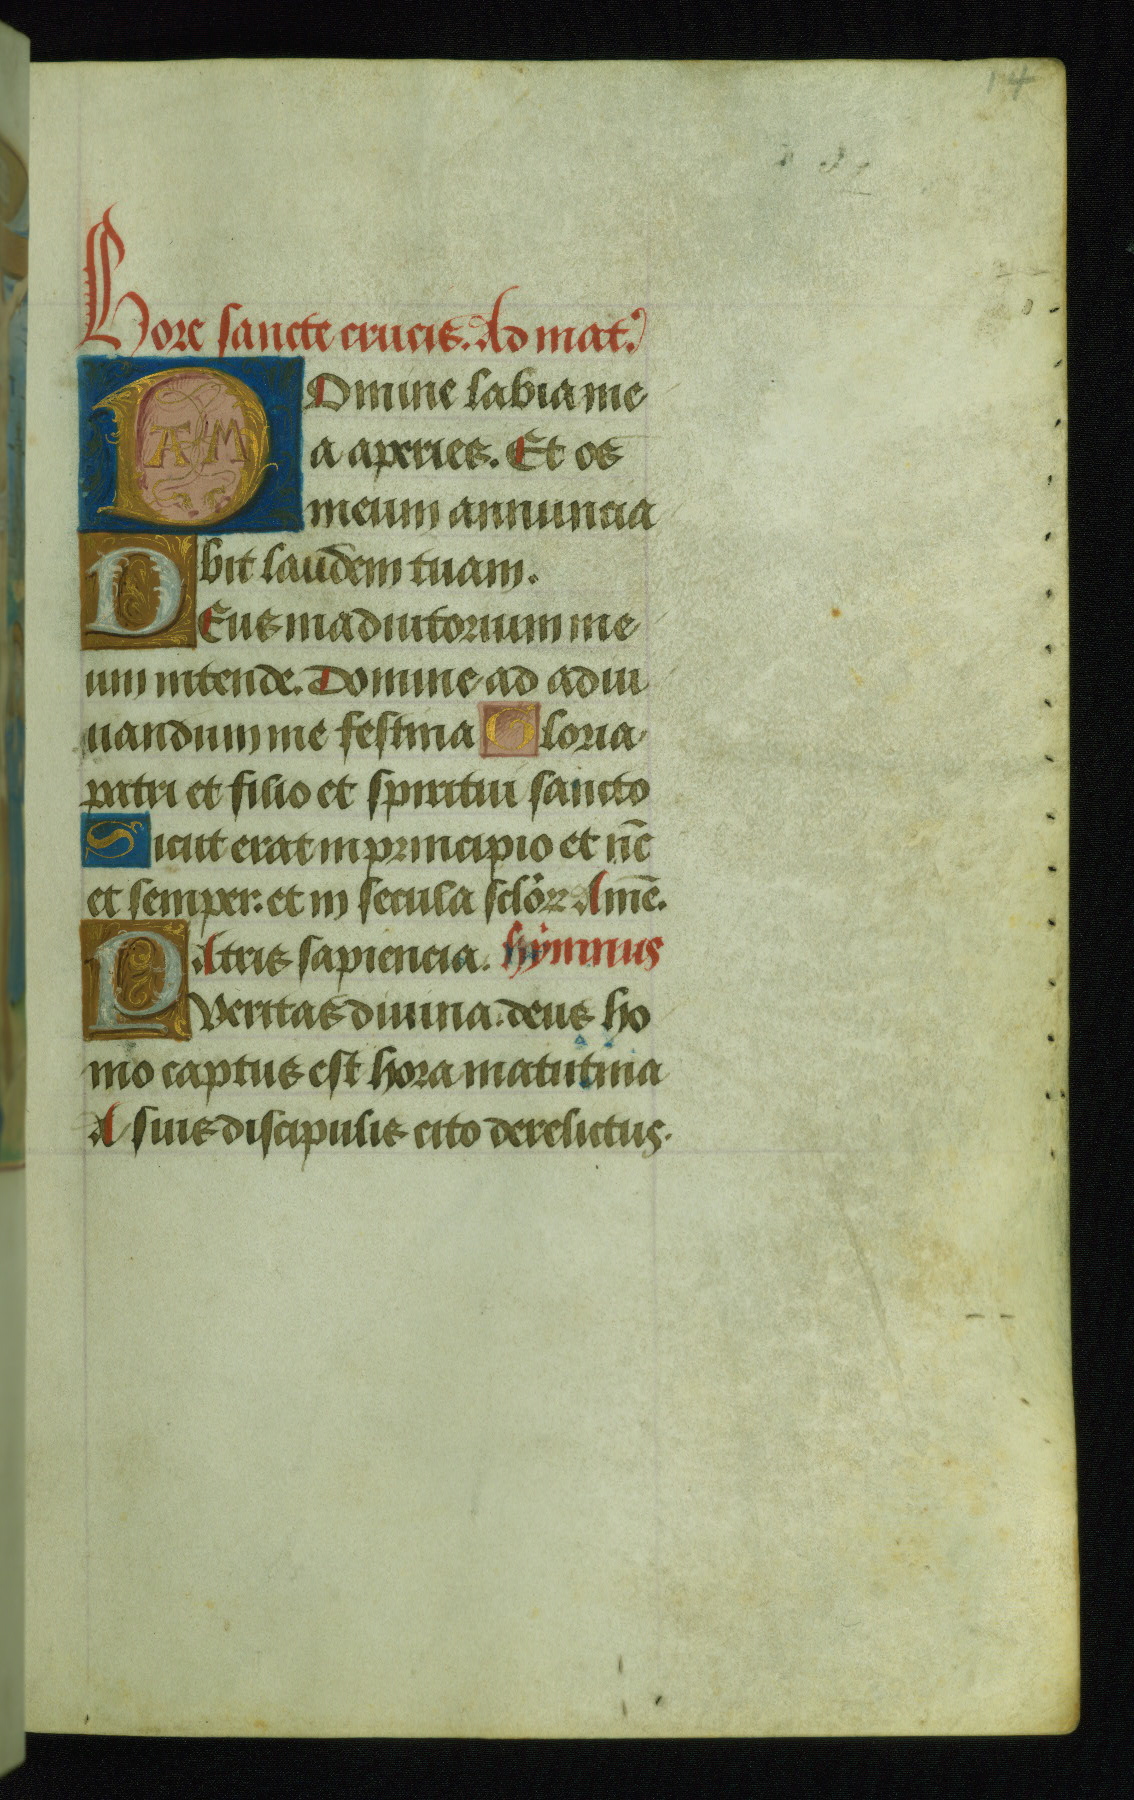 14
Hore sancte crucis. Ad mat⁹
Domine labia me
AM
a aperies. Et os
meum annuncia
bit laudem tuam.
Deus in adiutorium me
um intende. Domine ad adiu
uandum me festina Gloria
patri et filio et spiritui sancto
Sicut erat in principio et nc̄
et semper: et in secula sclo᷑ꝝ Amē.
PAtris sapiencia. hymnus
Veritas diuina. deus ho
mo captus est hora matutina
A suis discipulis cito derelictus.